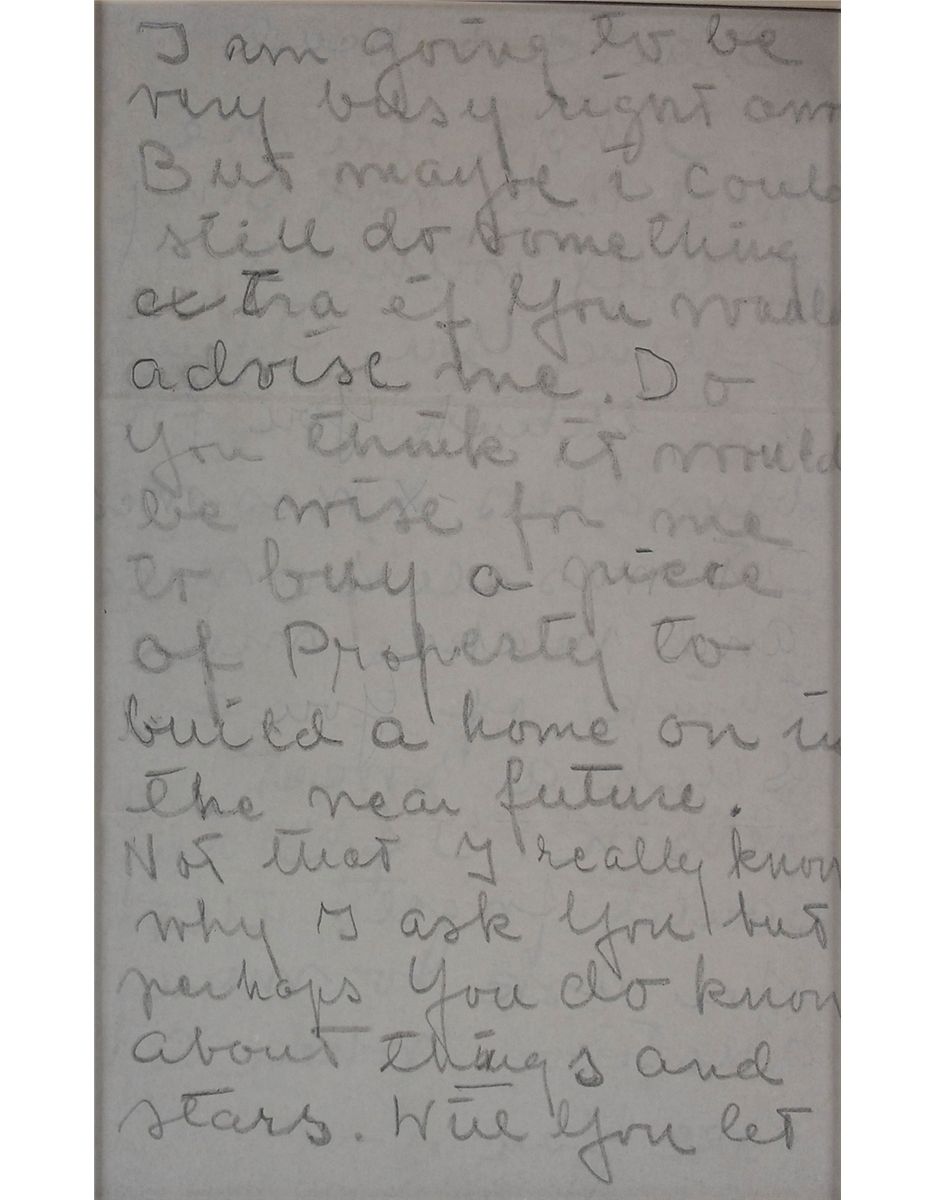 I am going to be
very busy right
But maybe i could
still do something
extra if You
advise me. Do
You think it would
be wise for me
to buy a piece
of Property to
build a home on in
the near future.
Not that I really know
why I ask You but
perhaps You do know
about things and
stars. Will You let